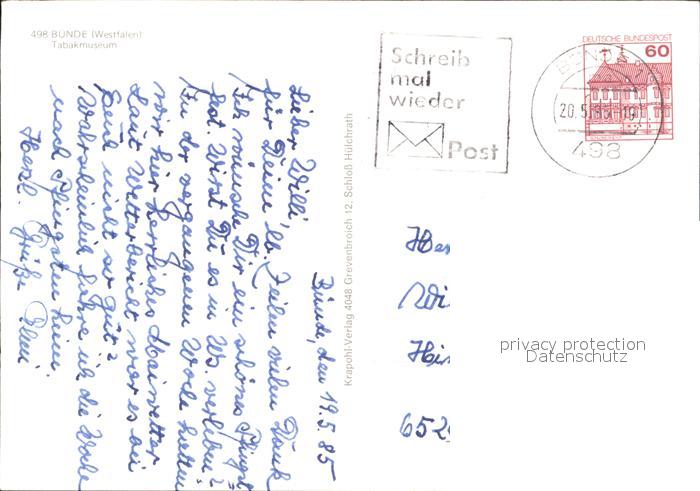 498 BÜNDE (Westfalen)
Tabakmuseum
Schreib
mal
wieder
Post
DEUTSCHE BUNDESPOST
60
BÜNDE
20.5.85-10
498
Krapohl-Verlag 4048 Grevenbroich 12, Schloß Hülchrath
Bünde, den 19.5.85
Lieber Willi!
Für Deine lb. Zeilen vielen Dank
Ich wünsche Dir ein schönes Pfingst=
fest. Wirst Du es in Ws. verleben?
In der vergangenen Woche hatten
wir hier herrliches Maiwetter
Laut Wetterbericht war es bei
Euch nicht so gut?
Wahrscheinlich fahre ich die Woche
nach Pfingsten heim.
Herzl. Grüße
Wi
652
privacy protection
Datenschutz